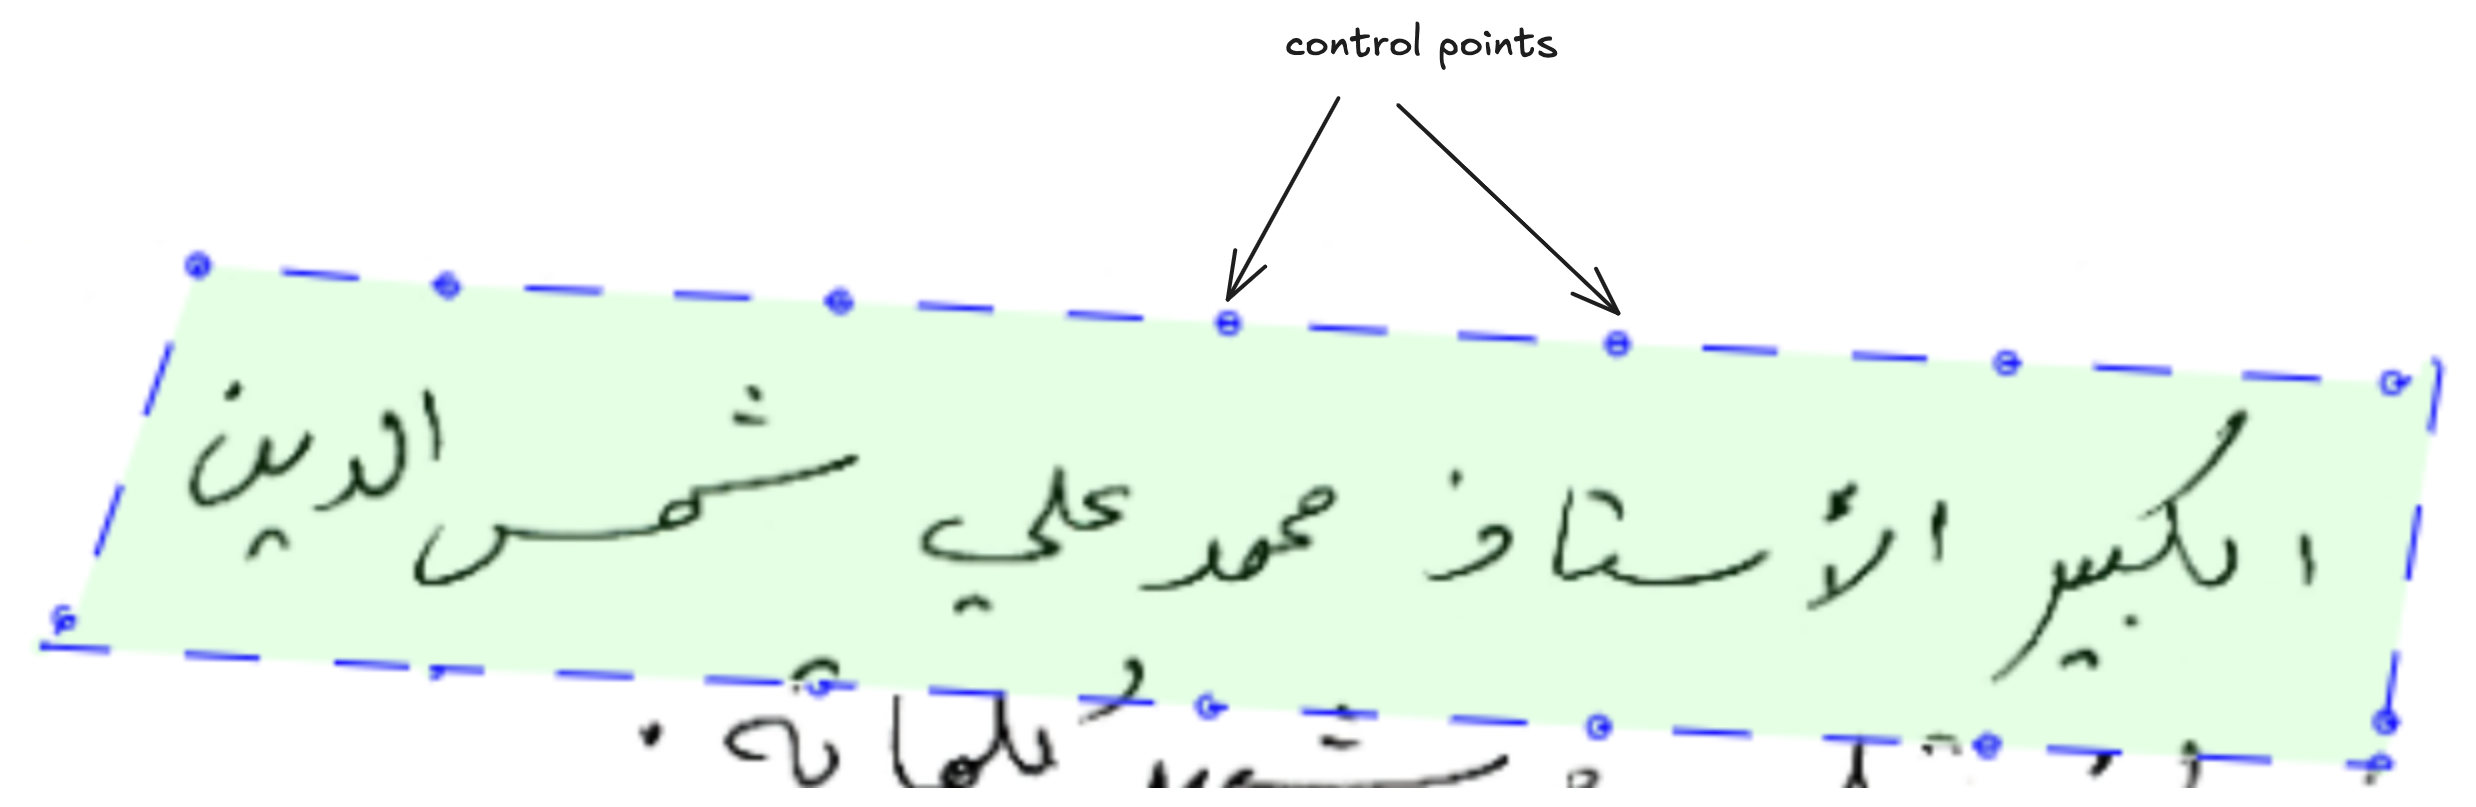 control points
الكبير الأستاذ محمد علي شمس الدين